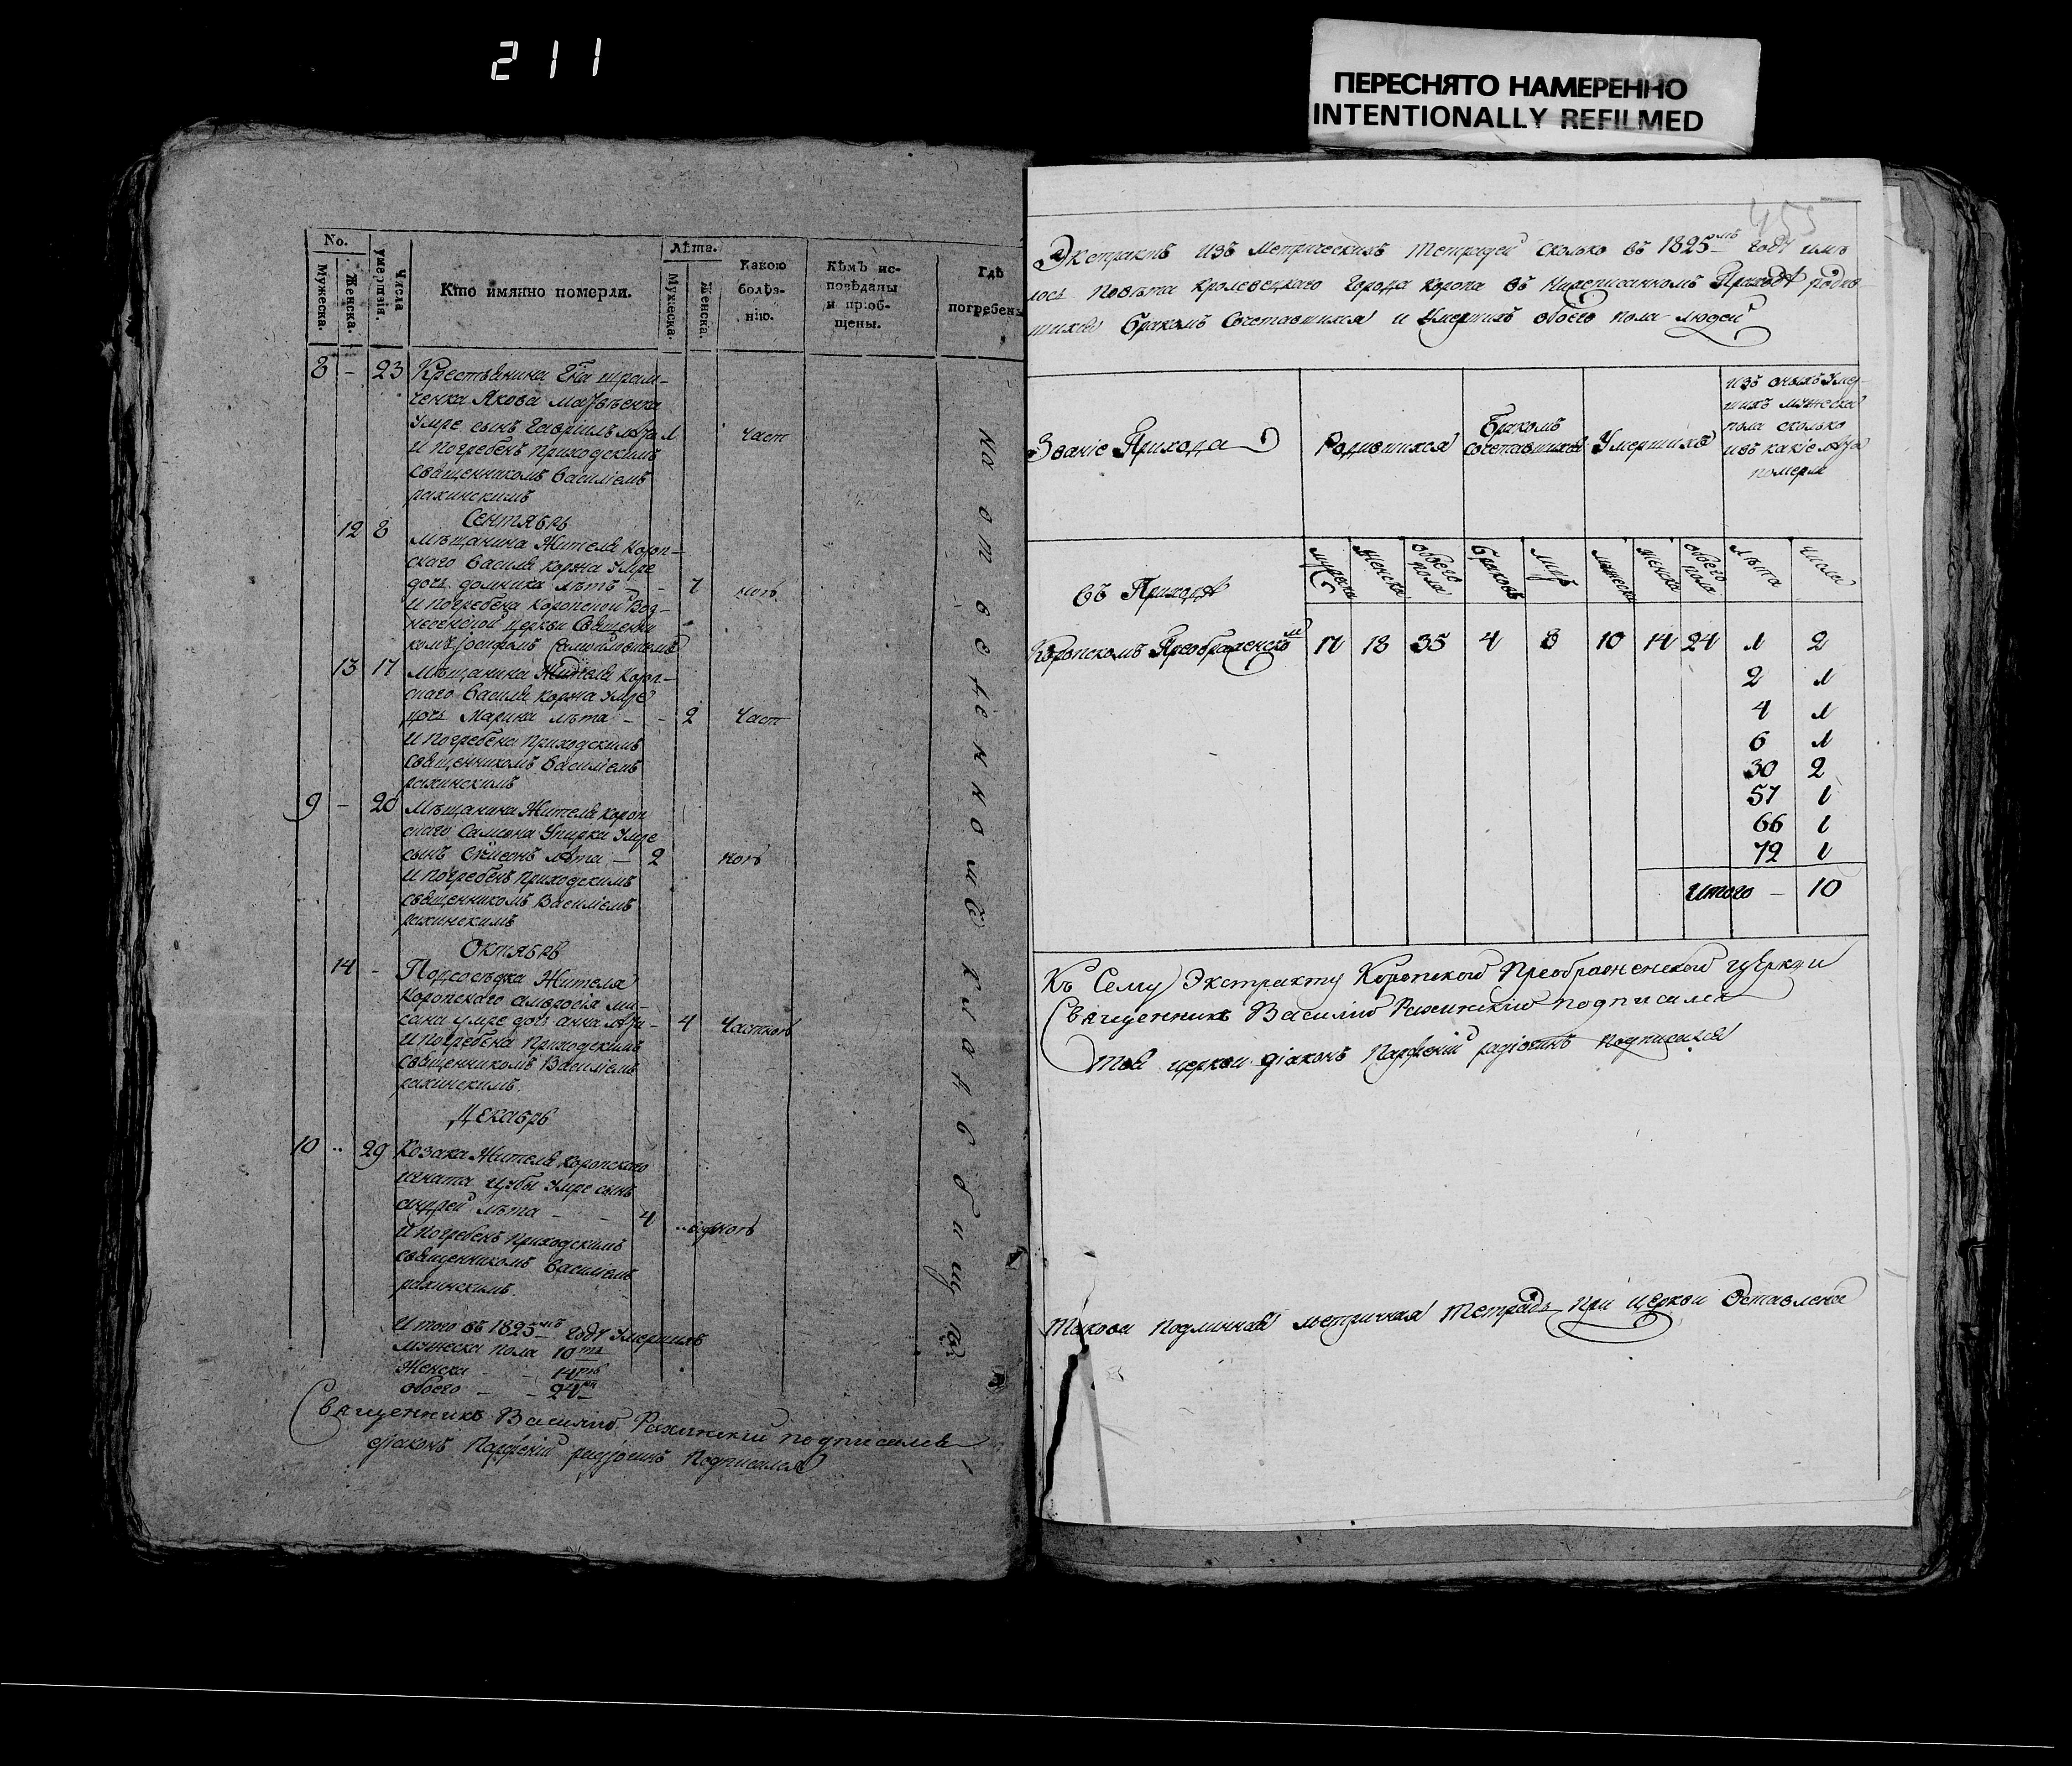 211
ПЕРЕСНЯТО НАМЕРЕННО
INTENTIONALLY REFILMED
No.
Мужеска.
Женска.
Числа умертвія.
Кто имянно померли.
Лѣта.
Мужеска.
Женска.
Какою болѣз-
нію.
Кѣмъ ис-
повѣданы
и пріоб-
щены.
Гдѣ
погребены
8 - 23 Крестьянина
Якова
Умре сынъ Гавріилъ
И погребенъ приходскимъ
священникомъ Василіемъ
рахинскимъ
Сентябрь
12 8 Мѣщанина Жителя Короп-
ского Василя Коржа Умре
дочь домника лѣтъ - - 7
И погребена Коропской Воз-
несенской Церкви Священни
комъ Іосифомъ Самойловичемъ
13 17 Мѣщанина Жителя Короп-
ского Василя Коржа Умре
дочь Марина лѣта - - 2
И погребена Приходскимъ
священникомъ Василіемъ
рахинскимъ
9 - 20 Мѣщанина Жителя Короп
ского Самона Упирка Умре
сынъ лѣта - 2
И погребенъ Приходскимъ
священникомъ Василіемъ
рахинскимъ
Октябрь
14 - Подсосѣдка Жителя
Коропского амвросія ми-
умре дочь анна лѣта - 4
И погребена Приходскимъ
священникомъ Василіемъ
рахинскимъ
Декабрь
10 29 Козака Жителя Коропского
игната Умре сынъ
андрей лѣта - - 4
И погребенъ Приходскимъ
священникомъ Василіемъ
рахинскимъ
На отведенномъ кладбищѣ
Итого въ 1825мъ году Умершихъ
мужеска пола 10ть
Женска - - 14ть
обоего - - 24
Священникъ Василій Рахинскій подписался
діаконъ Парфеній подписался
455
Экстрактъ изъ Метрическихъ Тетрадей сколько въ 1825мъ году имѣ
лось Повѣта Кролевецкаго Города Коропа въ Нижеписанномъ Приходѣ родив
шихся бракомъ Сочетавшихся и Умершихъ обоего пола людей
Званіе Прихода
Родившихся
Бракомъ
сочетавшихся
Умершихъ
изъ оныхъ Умер-
шихъ мужеска
пола сколько
и въ какіе лѣта
померли
въ Приходѣ
мужеска
Женска
обоего пола
браковъ
мужеска
Женска
обоего пола
лѣта
число
Коропскомъ Преображенскомъ 17 18 35 4 8 10 14 24 1 2
2 1
4 1
6 1
30 2
57 1
66 1
72 1
Итого - 10
Къ Сему Экстракту Коропской Преображенской Церкви
Священникъ Василій Рахинскій подписался
Той церкви діаконъ Парфеній подписался
Такова подлинная метричная Тетрадь при церкви оставлена